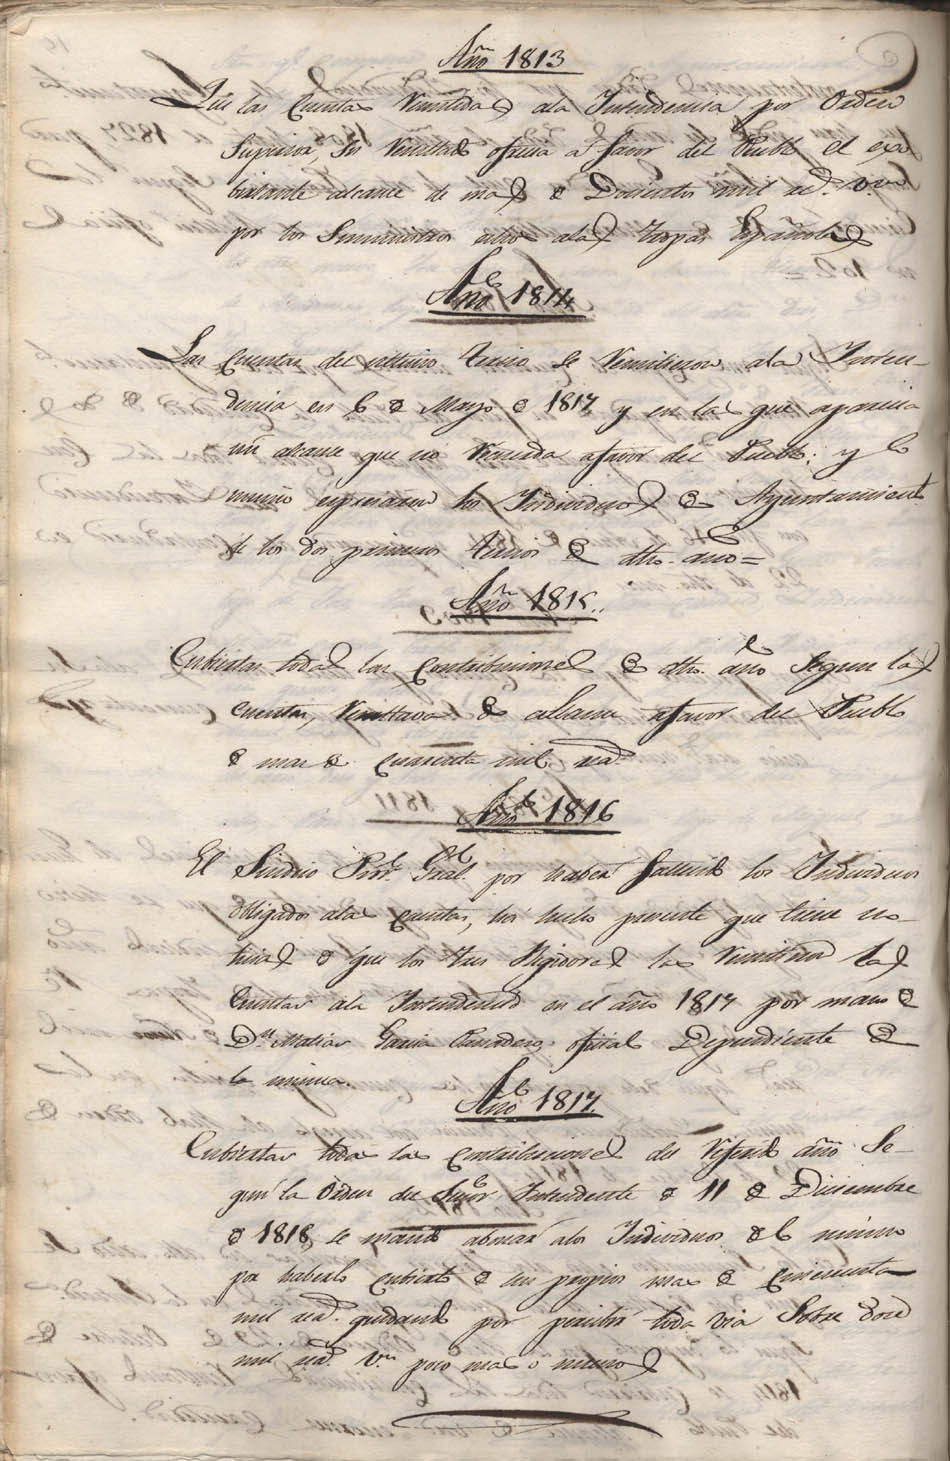 Año 1813
Que las Cuentas Remitidas ala Intendencia por Orden
Superior, su Resultado ofrecia a favor del Pueblo el exor
bitante alcance de mas de Doscientos mil rs. vn.
por los Suministros alas Tropas Españolas
Año 1814
Las Cuentas del ultimo Tercio se Remitieron ala Inten-
dencia en 6 de Mayo de 1817 y en las que aparecia
un alcance que no Recuerda afavor del Pueblo; y lo
mismo espresaron los Individuos de Ayuntamiento
de los dos primeros Tercios de dho. año =
Año 1815.
Cubiertas todas las Contribuciones de dho. año Segun las
Cuentas, Resultava de alcance afavor del Pueblo
de mas de Cuarenta mil rs.
Año 1816
El Sindico Pror. Gral. por haber fallecido los Individuos
obligados alas Cuentas, hizo presente que tiene no-
ticias de que los tres Regidores las Remitieron las
Cuentas ala Intendencia en el año 1817 por mano de
Dn. Matias Garcia oficial Dependiente de
la misma.
Año 1817.
Cubiertas todas las Contribuciones del Referido año Se-
gun la Orden del Señor Intendente de 11 de Diciembre
de 1818, se mandó abonar alos Individuos del mismo
por haberlo cubierto de sus propios mas de Cincuenta
mil rs. quedando por percibir toda via Sobre doce
mil rs. vn. poco mas o menos